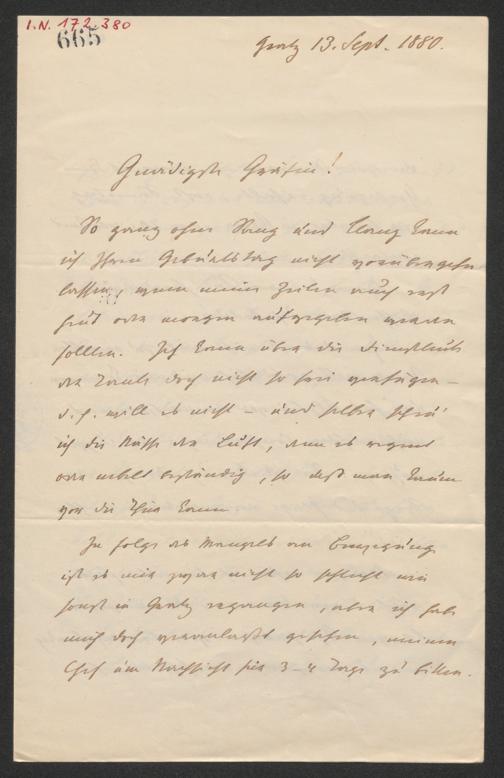 I.N. 172.380
665
Gratz 13. Sept. 1880.
Gnädigste Gräfin!
So ganz ohne Sang und Klang kann
ich Ihren Geburtstag nicht vorübergehn
lassen, wenn meine Zeilen auch erst
heut oder morgen aufgegeben werden
sollten. Ich kann über die Dienstleute
der Tante doch nicht so frei verfügen –
d. h. will es nicht – und selber scheu'
ich die Nässe der Luft, denn es regnet
oder nebelt beständig, so daß man kaum
vor die Thür kann
In folge des Mangels an Bewegung
ist es mir zwar nicht so schlecht wie
sonst in Gratz ergangen, aber ich habe
mich doch veranlaßt gesehen, meinen
Chef um Nachsicht für 3–4 Tage zu bitten.